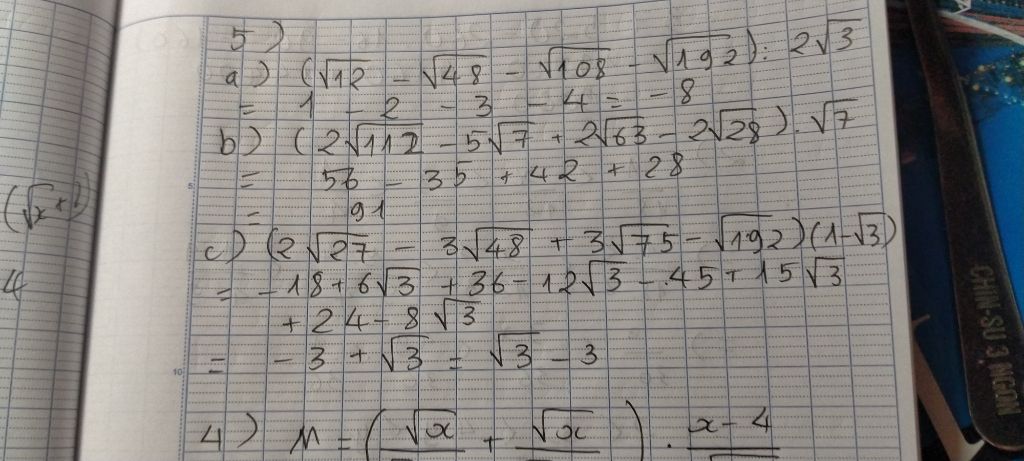 5)
a) (√12 - √48 - √108 - √192) : 2√3
= 1 - 2 - 3 - 4 = - 8
b) (2√112 - 5√7 + 2√63 - 2√28) . √7
= 56 - 35 + 42 + 28
= 91
c) (2√27 - 3√48 + 3√75 - √192)(1-√3)
= -18 + 6√3 + 36 - 12√3 - 45 + 15√3
+ 24 - 8√3
= - 3 + √3 = √3 - 3
4) M = (√x + √x) . x - 4
(√x +
4
5
10
CHIN-SU 3 MGON